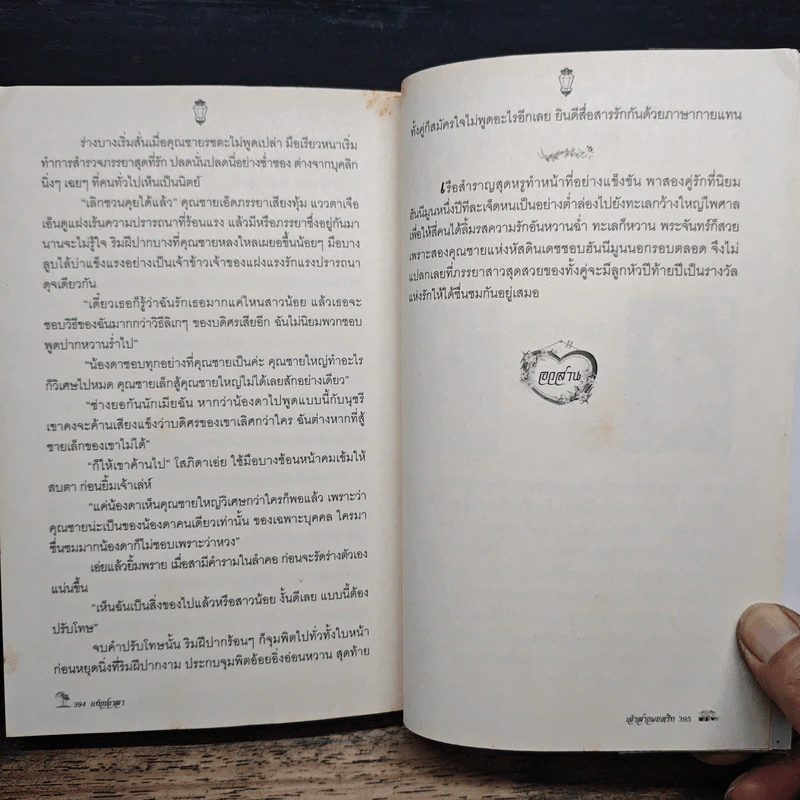 ร่างบางเริ่มสั่นเมื่อคุณชายรชตะไม่พูดเปล่า มือเรียวหนาเริ่ม
ทำการสำรวจภรรยาสุดที่รัก ปลดนั่นปลดนี่อย่างช่ำชอง ต่างจากบุคลิก
นิ่งๆ เฉยๆ ที่คนทั่วไปเห็นเป็นนิตย์
“เลิกชวนคุยได้แล้ว” คุณชายเอ็ดภรรยาเสียงทุ้ม แววตาเจือ
เอ็นดูแฝงเร้นความปรารถนาที่ร้อนแรง แล้วมีหรือภรรยาซึ่งอยู่กันมา
นานจะไม่รู้ใจ ริมฝีปากบางที่คุณชายหลงใหลเผยอขึ้นน้อยๆ มือบาง
ลูบไล้บ่าแข็งแรงอย่างเป็นเจ้าข้าวเจ้าของแฝงแรงรักแรงปรารถนา
ดุจเดียวกัน
“เดี๋ยวเธอก็รู้ว่าฉันรักเธอมากแค่ไหนสาวน้อย แล้วเธอจะ
ชอบวิธีของฉันมากกว่าวิธีลิเกๆ ของบดิศรเสียอีก ฉันไม่นิยมพวกชอบ
พูดปากหวานร่ำไป”
“น้องดาชอบทุกอย่างที่คุณชายเป็นค่ะ คุณชายใหญ่ทำอะไร
ก็วิเศษไปหมด คุณชายเล็กสู้คุณชายใหญ่ไม่ได้เลยสักอย่างเดียว”
“ช่างยอกันนักเมียฉัน หากว่าน้องดาไปพูดแบบนี้กับนุชรี
เขาคงจะค้านเสียงแข็งว่าบดิศรของเขาเลิศกว่าใคร ฉันต่างหากที่สู้
ชายเล็กของเขาไม่ได้”
“ก็ให้เขาค้านไป” โสภิดาเอ่ย ใช้มือบางช้อนหน้าคมเข้มให้
สบตา ก่อนยิ้มเจ้าเล่ห์
“แค่น้องดาเห็นคุณชายใหญ่วิเศษกว่าใครก็พอแล้ว เพราะว่า
คุณชายน่ะเป็นของน้องดาคนเดียวเท่านั้น ของเฉพาะบุคคล ใครมา
ชื่นชมมากน้องดาก็ไม่ชอบเพราะว่าหวง”
เอ่ยแล้วยิ้มพราย เมื่อสามีคำรามในลำคอ ก่อนจะรัดร่างตัวเอง
แน่นขึ้น
“เห็นฉันเป็นสิ่งของไปแล้วหรือสาวน้อย งั้นดีเลย แบบนี้ต้อง
ปรับโทษ”
จบคำปรับโทษนั้น ริมฝีปากร้อนๆ ก็จุมพิตไปทั่วทั้งใบหน้า
ก่อนหยุดนิ่งที่ริมฝีปากงาม ประกบจุมพิตอ้อยอิ่งอ่อนหวาน สุดท้าย
394 แก้วชวาลา
ทั้งคู่ก็สมัครใจไม่พูดอะไรอีกเลย ยินดีสื่อสารรักกันด้วยภาษากายแทน
เรือสำราญสุดหรูทำหน้าที่อย่างแข็งขัน พาสองคู่รักที่นิยม
ฮันนีมูนหนึ่งปีทีละเจ็ดหนเป็นอย่างต่ำล่องไปยังทะเลกว้างใหญ่ไพศาล
เพื่อให้สี่คนได้ลิ้มรสความรักอันหวานฉ่ำ ทะเลก็หวาน พระจันทร์ก็สวย
เพราะสองคุณชายแห่งหัสดินเดชชอบฮันนีมูนนอกรอบตลอด จึงไม่
แปลกเลยที่ภรรยาสาวสุดสวยของทั้งคู่จะมีลูกหัวปีท้ายปีเป็นรางวัล
แห่งรักให้ได้ชื่นชมกันอยู่เสมอ
อวสาน
395